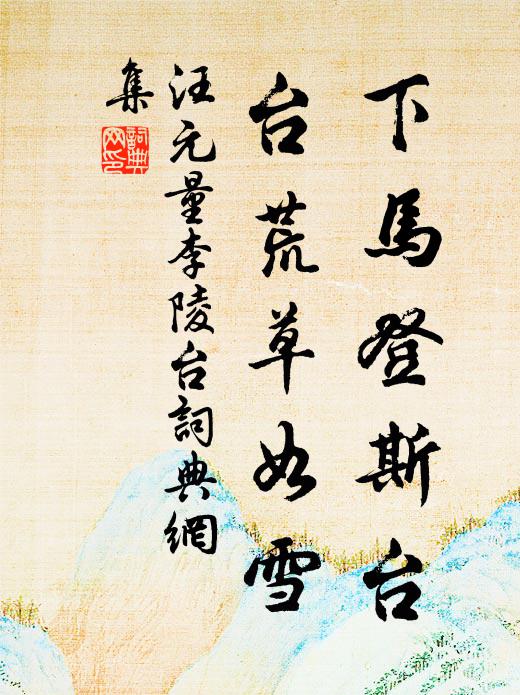 下馬登斯台
台荒草如雪
汪元量李陵台詞典網
集
詞典
网印